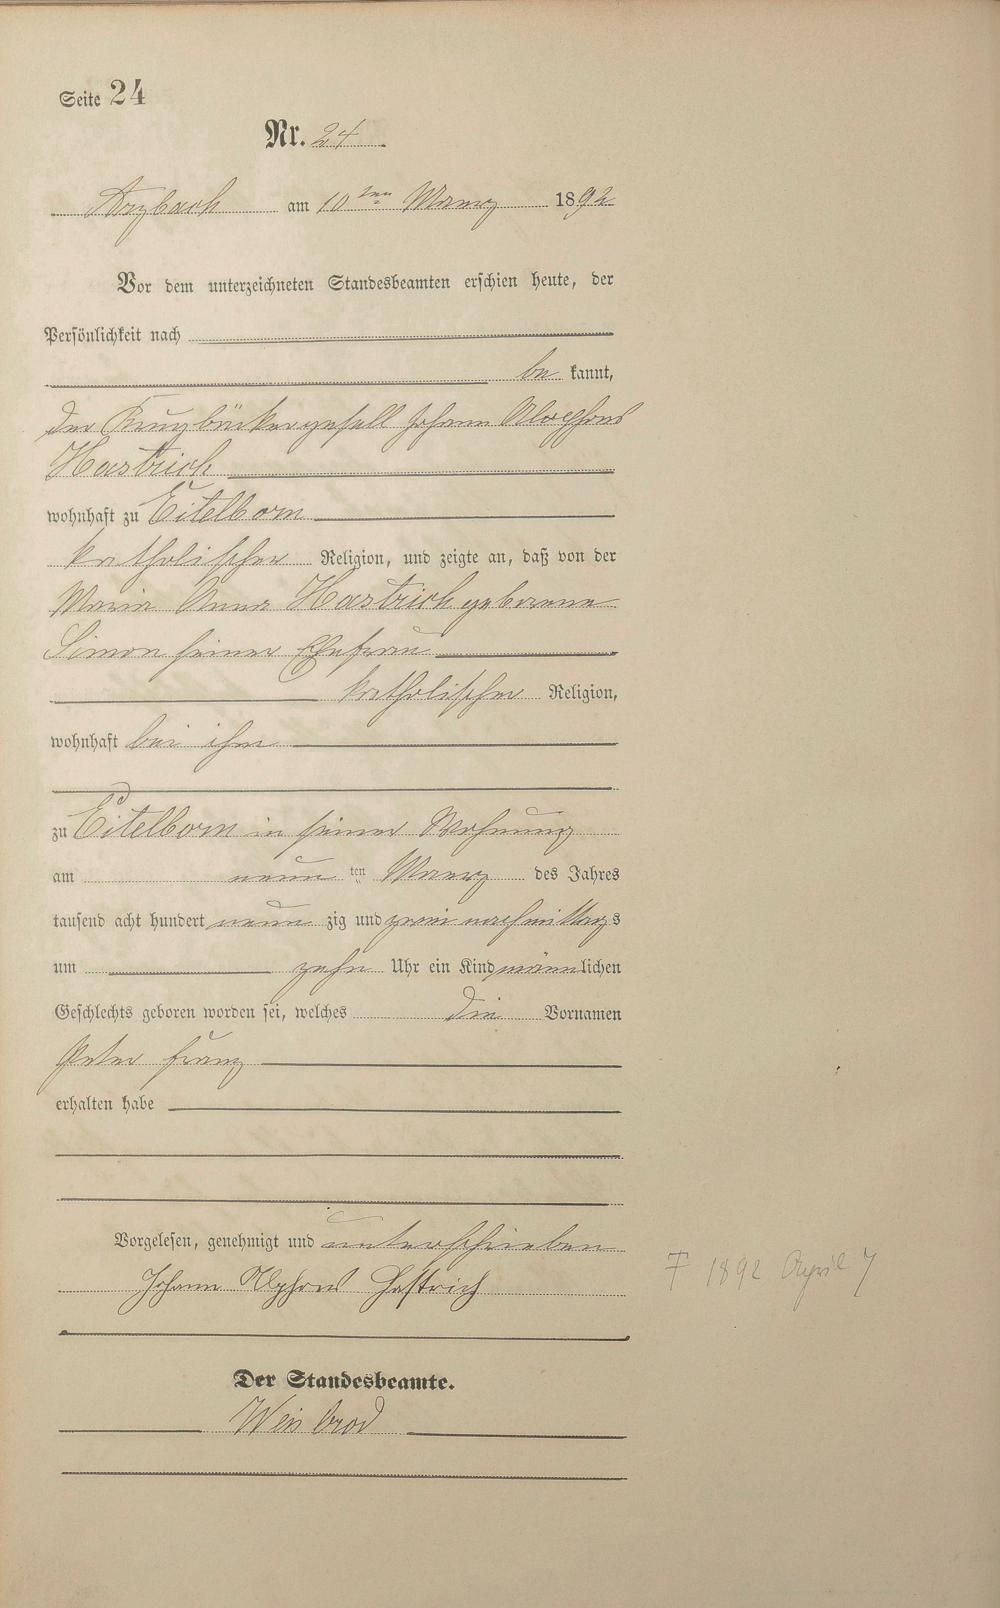 Seite 24
Nr. 24
Arzbach am 10ten Maerz 1892
Vor dem unterzeichneten Standesbeamten erschien heute, der
Persönlichkeit nach
be kannt,
der Krugbäckergesell Johann Alophons
Hastrich
wohnhaft zu Eitelborn
katholischer Religion, und zeigte an, daß von der
Maria Anna Hastrich geborene
Simon seiner Ehefrau
katholischer Religion,
wohnhaft bei ihm
zu Eitelborn in seiner Wohnung
am neun ten Maerz des Jahres
tausend acht hundert neun zig und zwei nachmittags
um zehn Uhr ein Kind männlichen
Geschlechts geboren worden sei, welches die Vornamen
Peter Franz
erhalten habe
Vorgelesen, genehmigt und unterschrieben
Johann Alphons Hastrich
Der Standesbeamte.
Weinbrod
† 1892 April 7